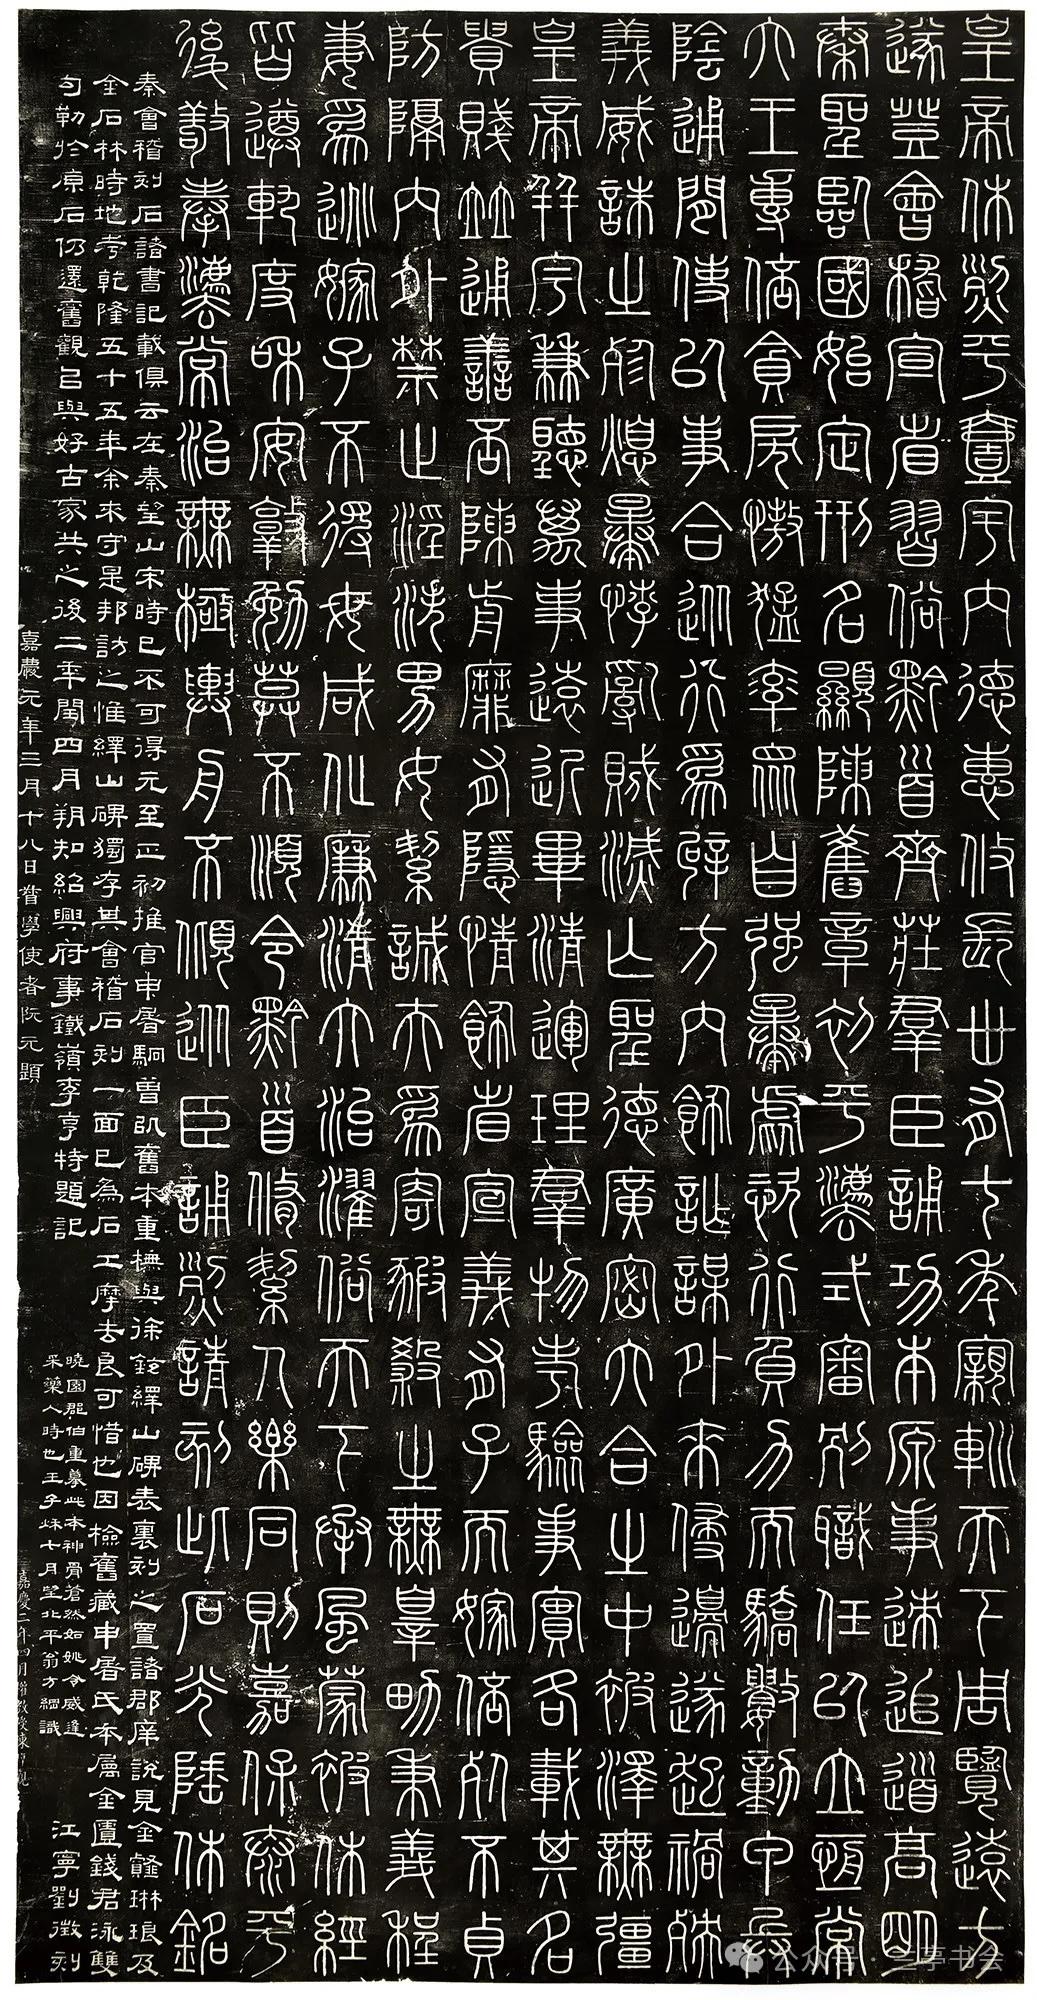 皇帝休烈平壹宇内德惠攸長卅有七年親軵天下周覽遠方
遂登會稽宣省習俗黔首齊莊羣臣誦功本原事速追道高明
秦聖臨國始定刑名顯陳舊章初平灋式審別職任以立恆常
六王專倍貪戾慠猛率眾自強暴虐恣行負力而驕數動甲兵
陰通閒使以事合從行為辟方内飾詐謀外來侵邊遂起禍殃
義威誅之殄熄暴悖亂賊滅亡聖德廣密六合之中被澤無彊
皇帝并宇兼聽萬事遠近畢清運理羣物考驗事實各載其名
貴賤並通善否陳前靡有隱情飾省宣義有子而嫁倍死不貞
防隔内外禁止淫泆男女絜誠夫為寄豭殺之無辠男秉義程
妻為逃嫁子不得母咸化廉清大治濯俗天下承風蒙被休經
皆遵軌度和安敦勉莫不順令黔首脩絜人樂同則嘉保泰平
後敬奉灋常治無極輿舟不傾從臣誦烈請刻此石光陲休銘
秦會稽刻石諸書記載俱云在秦望山宋時已不可得元至正初推官申屠駉曾以舊本重橅與徐鉉繹山碑表裏刻之置諸郡庠說見金薤琳琅及
金石林時地考乾隆五十五年余來守是邦訪之惟繹山碑獨存其會稽石刻一面已為石工摩去良可惜也因檢舊藏申屠氏本屬金匱錢君泳雙
勾勒於原石仍還舊觀以與好古家共之後二年閏四月朔知紹興府事鐵嶺李亨特題記 江寧劉徵刻
曉園郡伯重摹此本神骨蒼然如姚令威逢
采藥人時也壬子秌七月望北平翁方綱識
嘉慶元年三月十八日督學使者阮元題
嘉慶二年四月
公众号·兰亭书会